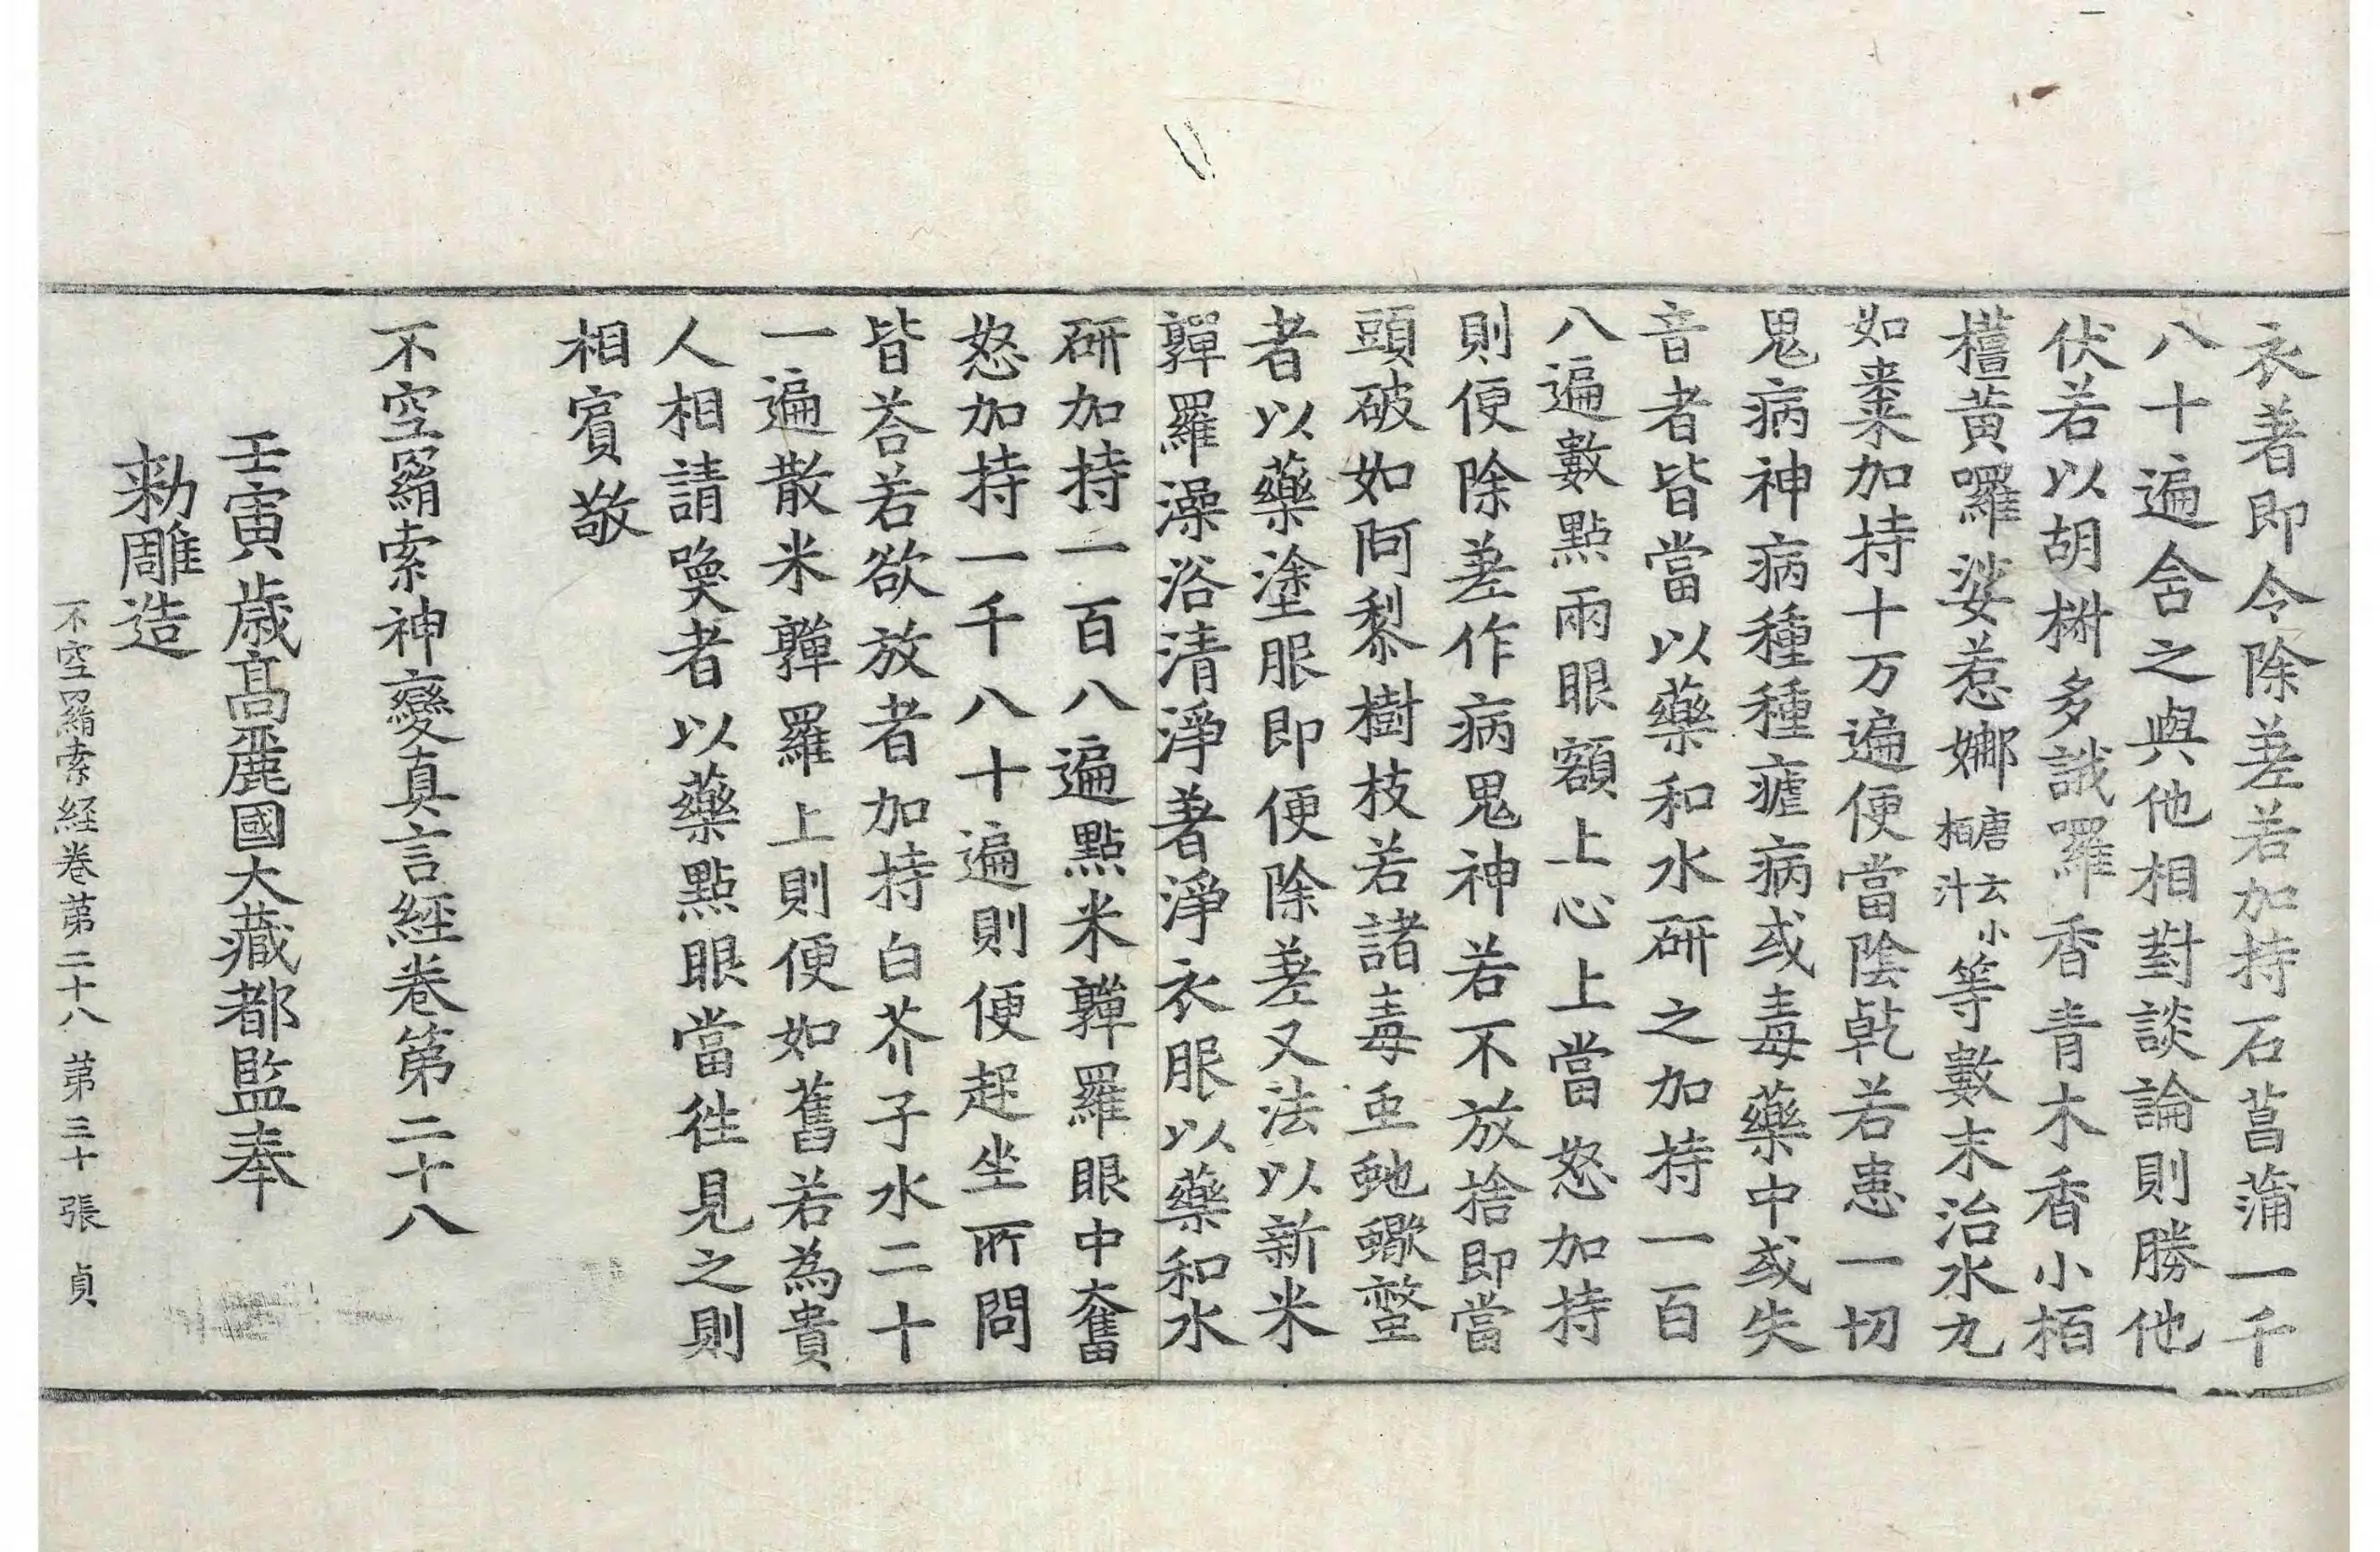 衣著即令除差若加持石菖蒲一千
八十遍含之與他相對談論則勝他
伏若以胡樹多誐羅香青木香小栢
檀黃囉娑惹娜唐云小栢汁等數末治水丸
如棗加持十万遍便當陰乾若患一切
鬼病神病種種瘧病或毒藥中或失
音者皆當以藥和水研之加持一百
八遍數點兩眼額上心上當怒加持
則便除差作病鬼神若不放捨即當
頭破如阿梨樹枝若諸毒䖝虵蠍螫
者以藥塗眼即便除差又法以新米
亸羅澡浴清淨著淨衣服以藥和水
研加持一百八遍點米亸羅眼中奮
怒加持一千八十遍則便起坐所問
皆荅若欲放者加持白芥子水二十
一遍散米亸羅上則便如舊若為貴
人相請喚者以藥點眼當往見之則
相賔敬
不空羂索神變真言經卷第二十八
壬寅歲高麗國大藏都監奉
勑雕造
不空羂索経卷苐二十八 苐三十張 貞